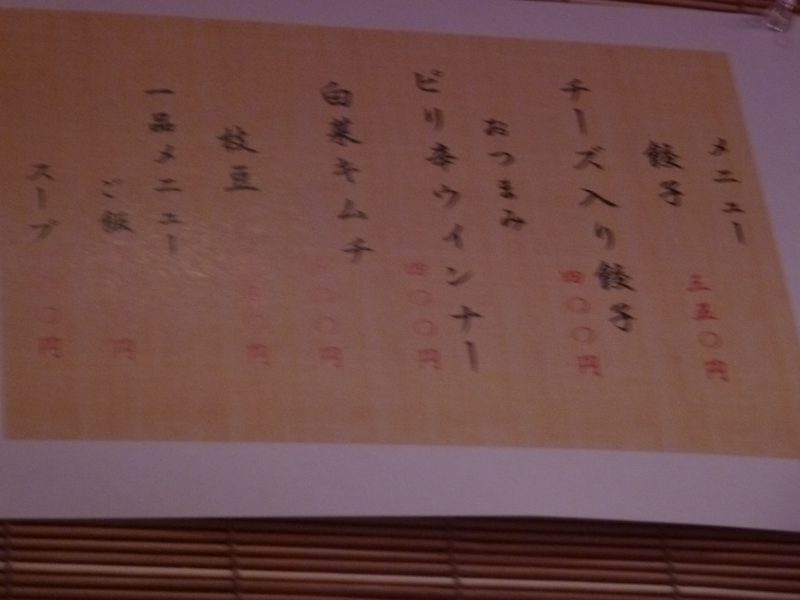 メニュー
餃子
三五〇円
チーズ入り餃子
四〇〇円
おつまみ
ピリ辛ウインナー
四〇〇円
白菜キムチ
〇〇円
枝豆
円
一品メニュー
ご飯
円
スープ
〇円